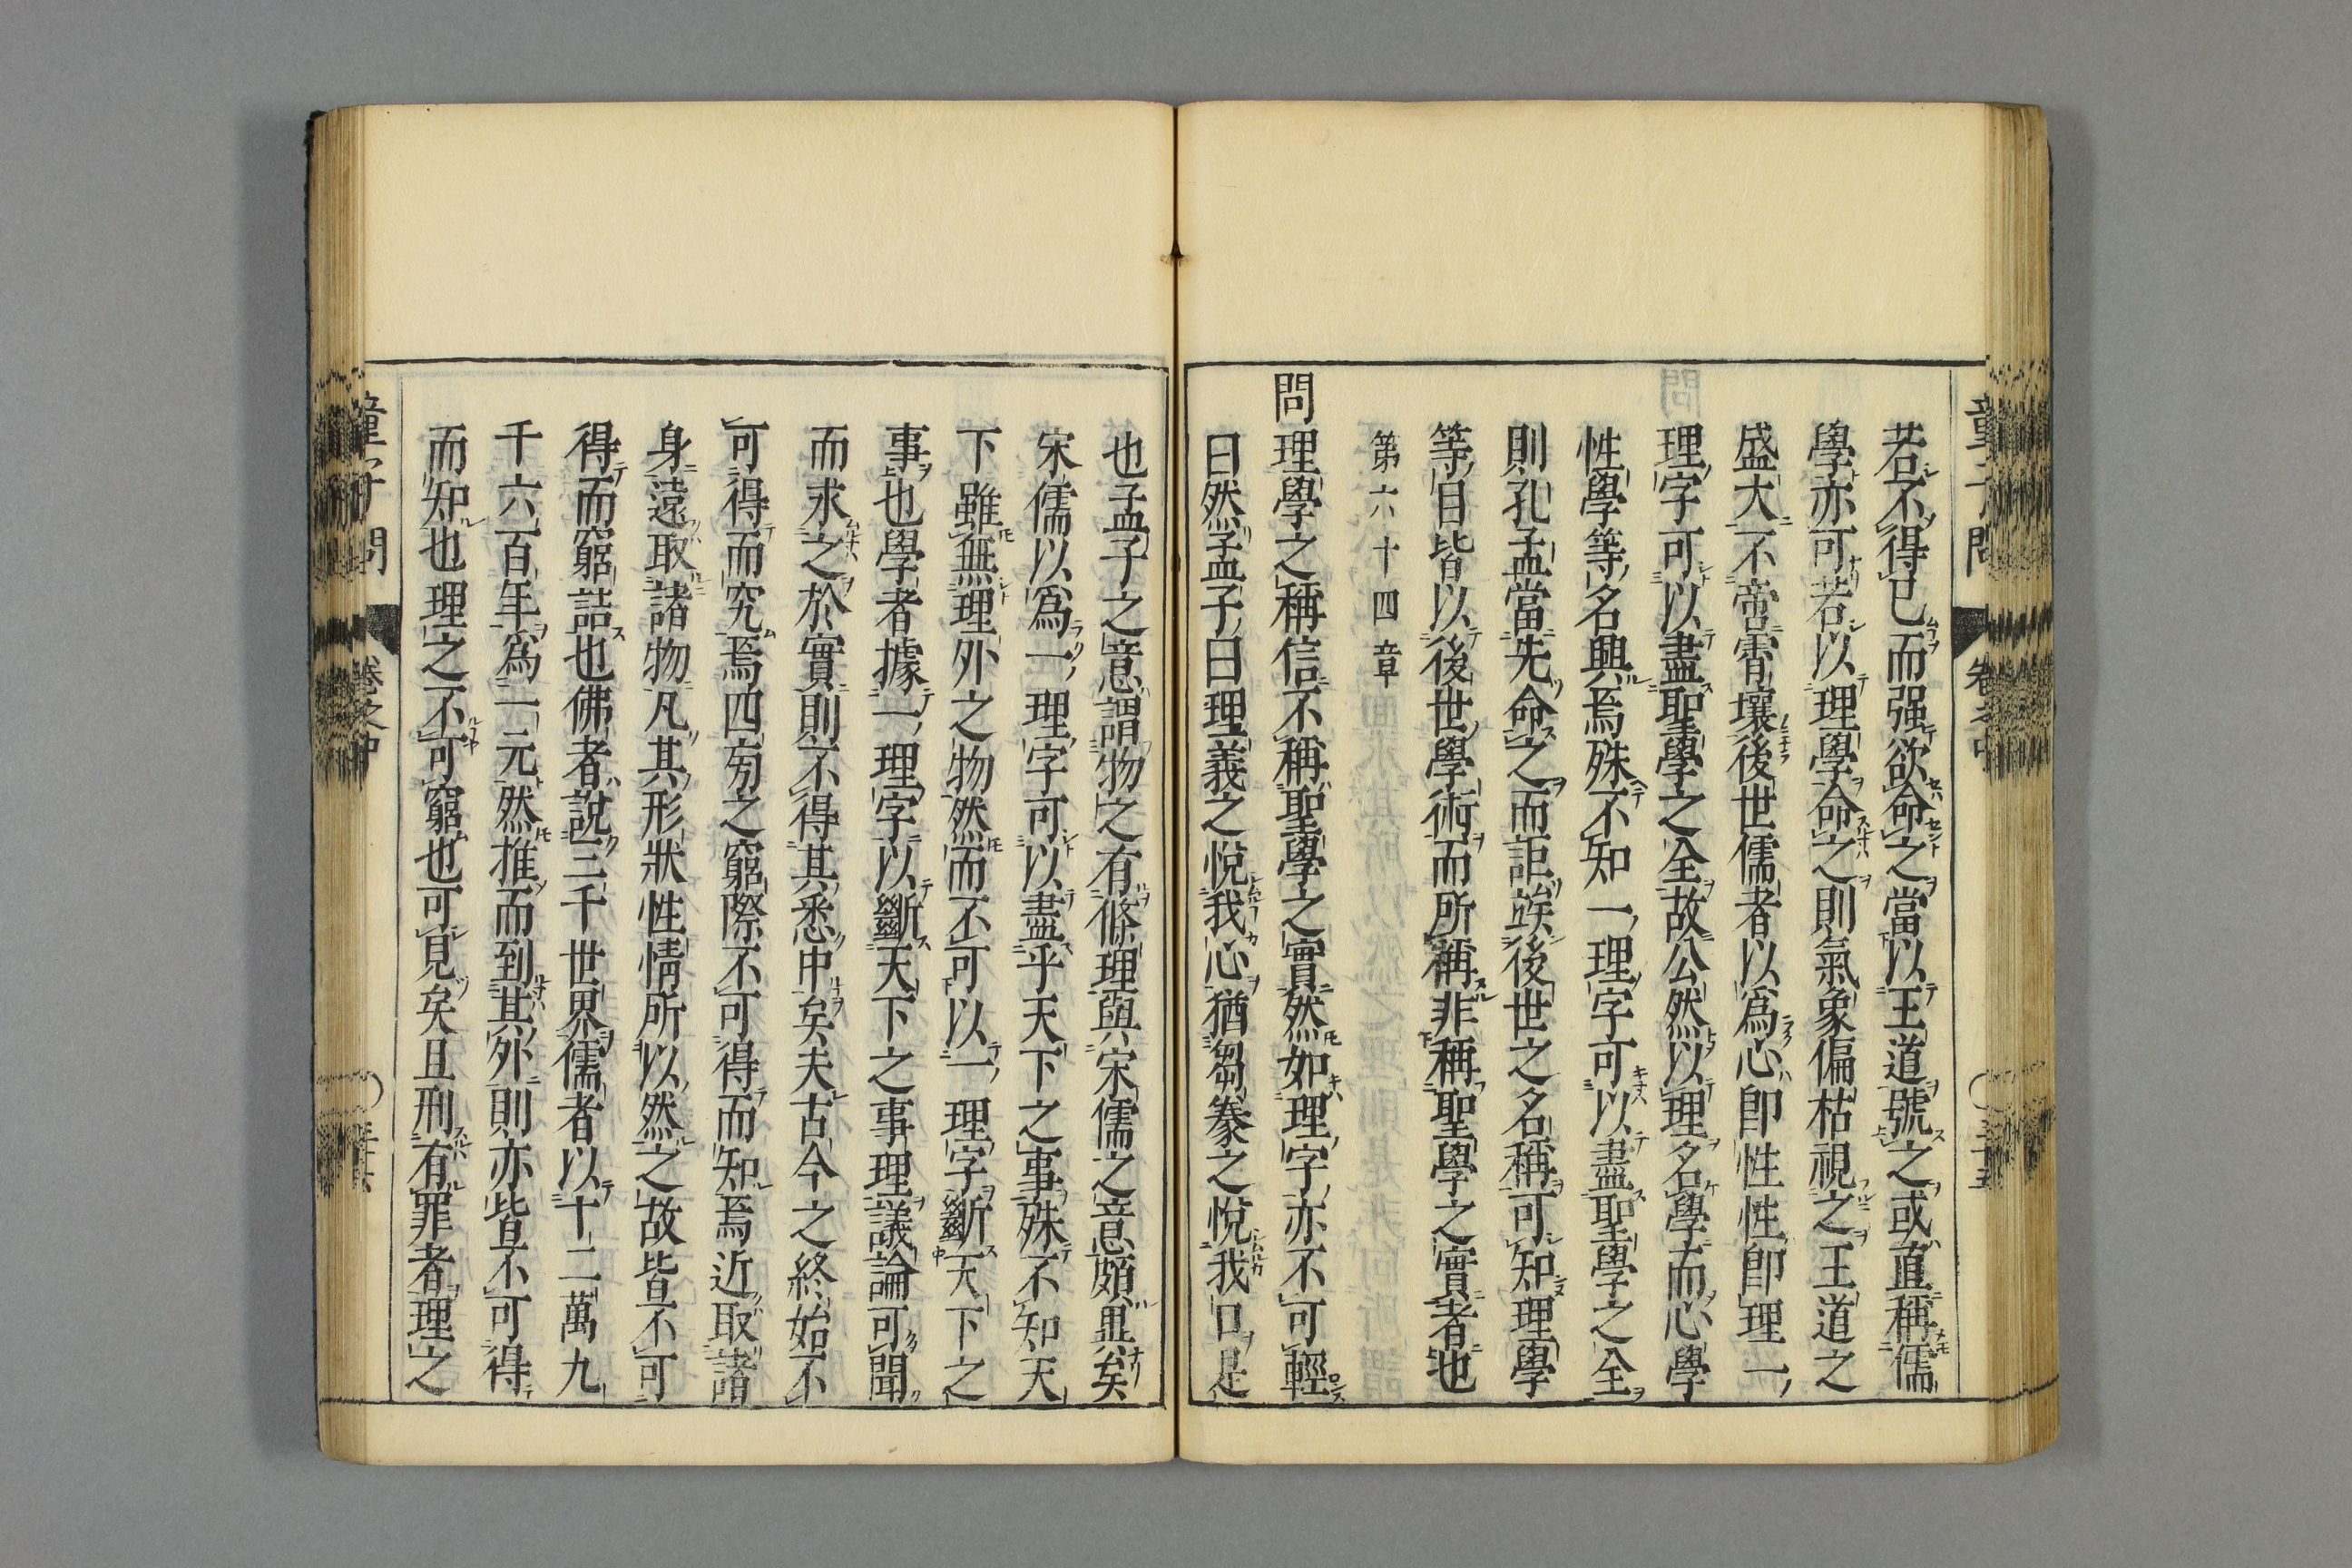 若不得已而强欲命之當以王道號之或直稱儒
學亦可若以理學命之則氣象偏枯視之王道之
盛大不啻霄壤後世儒者以爲心卽性性卽理一
理字可以盡聖學之全故公然以理名學而心學
性學等名興焉殊不知一理字可以盡聖學之全
則孔孟當先命之而詎竢後世之名稱可知理學
等目皆以後世學術而所稱非稱聖學之實者也
第六十四章
問理學之稱信不稱聖學之實然如理字亦不可輕
曰然孟子曰理義之悅我心猶芻豢之悅我口是
也孟子之意謂物之有條理與宋儒之意頗異矣
宋儒以爲一理字可以盡乎天下之事殊不知天
下雖無理外之物然而不可以一理字斷天下之
事也學者據一理字以斷天下之事理議論可聞
而求之於實則不得其悉中矣夫古今之終始不
可得而究焉四旁之窮際不可得而知焉近取諸
身遠取諸物凡其形狀性情所以然之故皆不可
得而窮詰也佛者說三千世界儒者以十二萬九
千六百年爲一元然推而到其外則亦皆不可得
而知也理之不可窮也可見矣且刑有罪者理之
童子問
卷之中